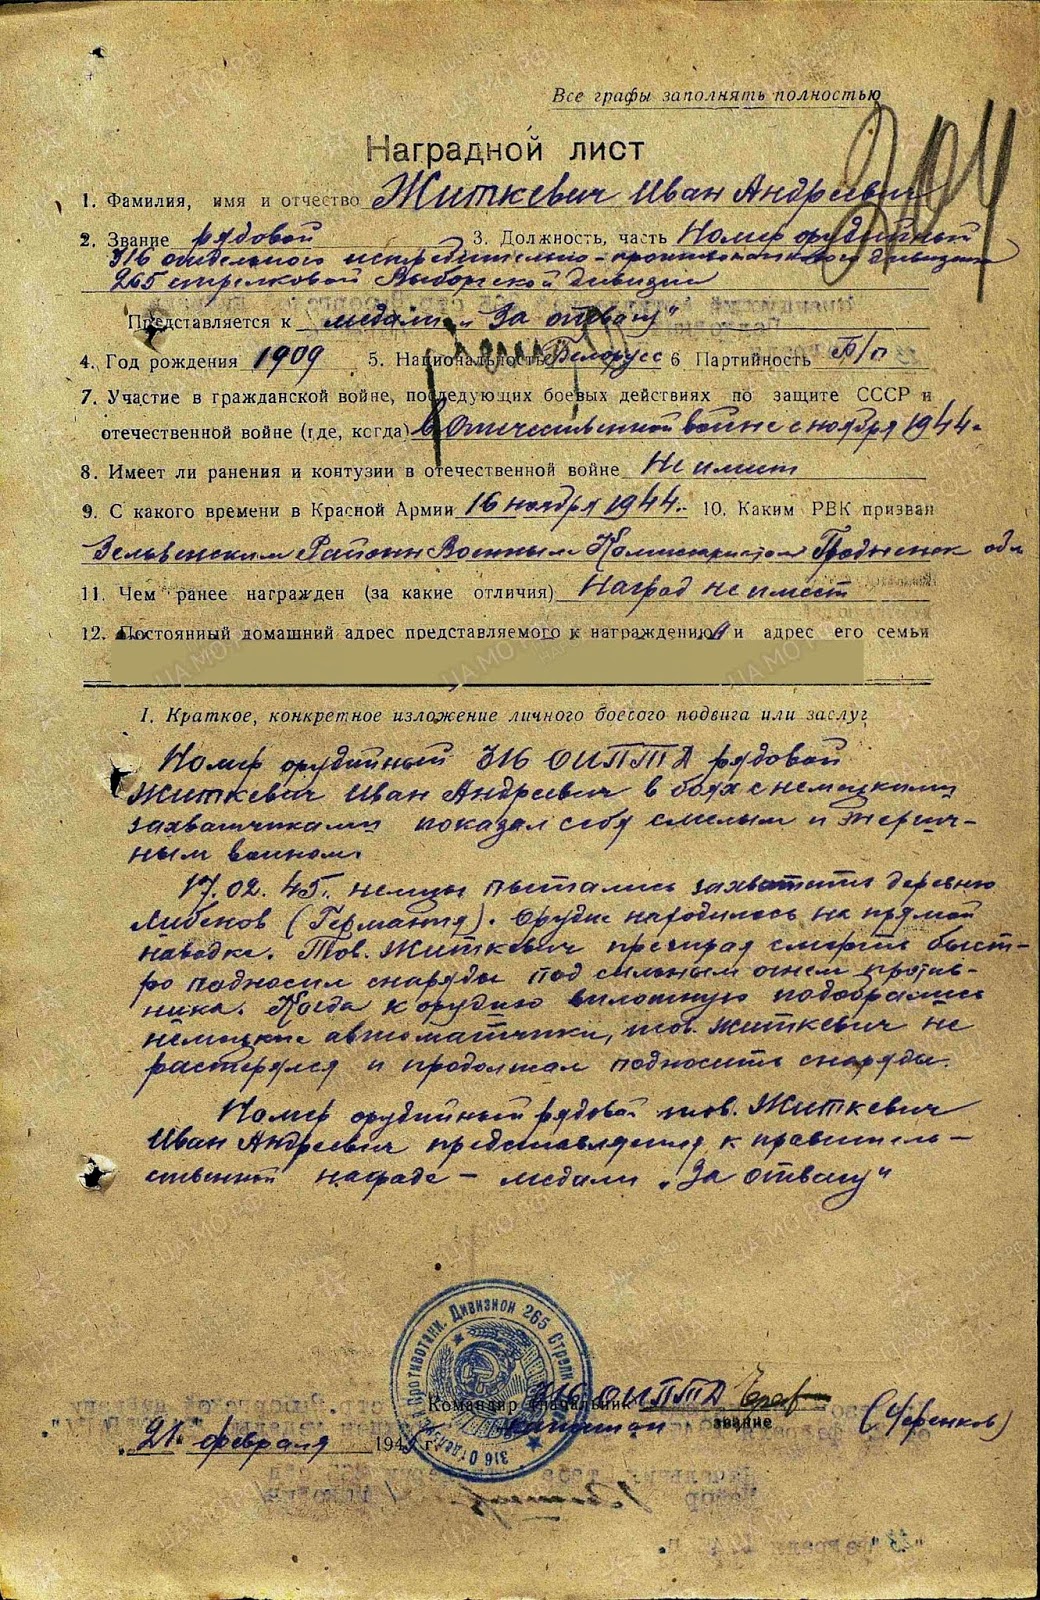 Все графы заполнять полностью
204
Наградной лист
1. Фамилия, имя и отчество Житкевич Иван Андреевич
2. Звание рядовой 3. Должность, часть Номер орудийный
316 отдельного истребительно-противотанкового дивизиона
265 стрелковой Выборгской дивизии
Представляется к медали „За отвагу"
4. Год рождения 1909 5. Национальность Белорусс 6 Партийность Б/п
7. Участие в гражданской войне, последующих боевых действиях по защите СССР и
отечественной войне (где, когда) в Отечественной войне с ноября 1944.
8. Имеет ли ранения и контузии в отечественной войне Не имеет
9. С какого времени в Красной Армии 16 ноября 1944. 10. Каким РВК призван
Зельвенским Районн Военным Комиссариатом Гродненск обл
11. Чем ранее награжден (за какие отличия) Наград не имеет
12. Постоянный домашний адрес представляемого к награждению и адрес его семьи
I. Краткое, конкретное изложение личного боевого подвига или заслуг
Номер орудийный 316 ОИПТД рядовой
Житкевич Иван Андреевич в боях с немецкими
захватчиками показал себя смелым и
ным воином.
17.02.45г. немцы пытались захватить деревню
Либенов (Германия). Орудие находилось на прямой
наводке. Тов. Житкевич презирая смерть быст-
ро подносил снаряды под сильным огнем против-
ника. Когда к орудию вплотную подобрались
немецкие автоматчики, тов. Житкевич не
растерялся и продолжал подносить снаряды.
Номер орудийный рядовой тов. Житкевич
Иван Андреевич представляется к правитель-
ственной награде – медали „За отвагу"
316 Отдельн. Противотанк. Дивизион 265 Стрелк.
Командир (начальник) 316 ОИПТД
капитан звание (Черенков)
„21" февраля 1945 г.